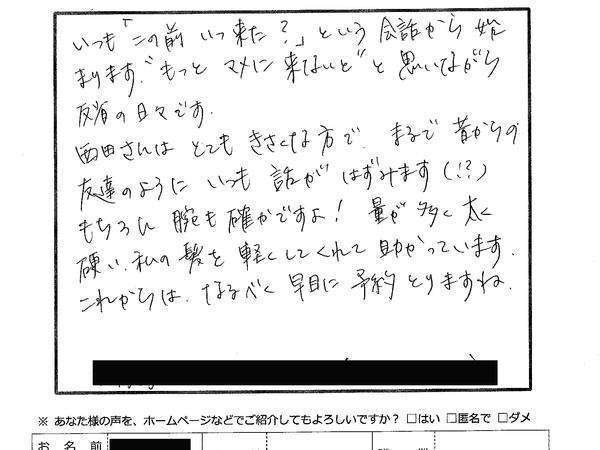 いつも「この前いつ来た？」という会話から始
まります。"もっとマメに来ないと"と思いながら
反省の日々です。
西田さんはとてもきさくな方で、まるで昔からの
友達のようにいつも話がはずみます（!?）
もちろん腕も確かですよ！量が多く太く
硬い、私の髪を軽くしてくれて助かっています。
これからは、なるべく早目に予約とりますね。
※ あなた様の声を、ホームページなどでご紹介してもよろしいですか？ □はい □匿名で □ダメ
お名前